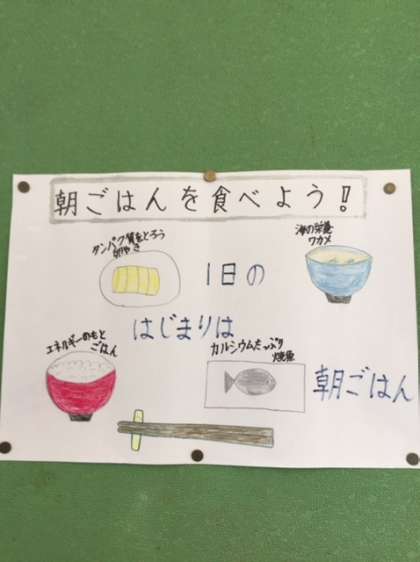 朝ごはんを食べよう!
タンパク質をとろう
卵やき
海の栄養
ワカメ
1日の
はじまりは
エネルギーのもと
ごはん
カルシウムたっぷり
焼魚
朝ごはん